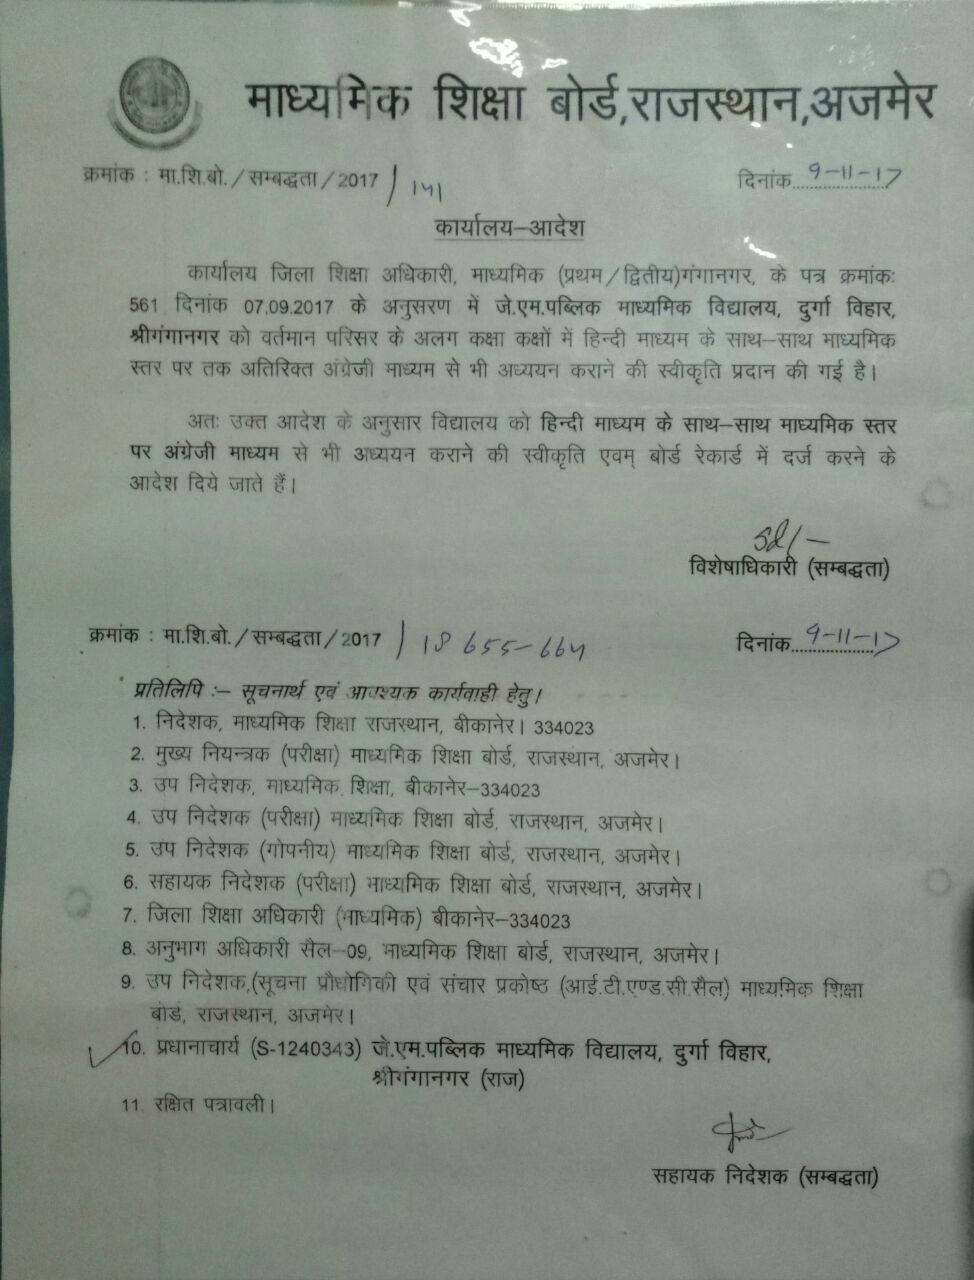 माध्यमिक शिक्षा बोर्ड,राजस्थान,अजमेर
क्रमांक : मा.शि.बो./सम्बद्धता/2017 / 141 दिनांक 9-11-17
कार्यालय–आदेश
कार्यालय जिला शिक्षा अधिकारी, माध्यमिक (प्रथम/द्वितीय)गंगानगर, के पत्र क्रमांकः
561 दिनांक 07.09.2017 के अनुसरण में जे.एम.पब्लिक माध्यमिक विद्यालय, दुर्गा विहार,
श्रीगंगानगर को वर्तमान परिसर के अलग कक्षा कक्षों में हिन्दी माध्यम के साथ–साथ माध्यमिक
स्तर पर तक अतिरिक्त अंग्रेजी माध्यम से भी अध्ययन कराने की स्वीकृति प्रदान की गई है।
अतः उक्त आदेश के अनुसार विद्यालय को हिन्दी माध्यम के साथ–साथ माध्यमिक स्तर
पर अंग्रेजी माध्यम से भी अध्ययन कराने की स्वीकृति एवम् बोर्ड रेकार्ड में दर्ज करने के
आदेश दिये जाते हैं।
Sd/-
विशेषाधिकारी (सम्बद्धता)
क्रमांक : मा.शि.बो./सम्बद्धता/2017 / 18655-664 दिनांक 9-11-17
प्रतिलिपि :– सूचनार्थ एवं आवश्यक कार्यवाही हेतु।
1. निदेशक, माध्यमिक शिक्षा राजस्थान, बीकानेर। 334023
2. मुख्य नियन्त्रक (परीक्षा) माध्यमिक शिक्षा बोर्ड, राजस्थान, अजमेर।
3. उप निदेशक, माध्यमिक शिक्षा, बीकानेर–334023
4. उप निदेशक (परीक्षा) माध्यमिक शिक्षा बोर्ड, राजस्थान, अजमेर।
5. उप निदेशक (गोपनीय) माध्यमिक शिक्षा बोर्ड, राजस्थान, अजमेर।
6. सहायक निदेशक (परीक्षा) माध्यमिक शिक्षा बोर्ड, राजस्थान, अजमेर।
7. जिला शिक्षा अधिकारी (माध्यमिक) बीकानेर–334023
8. अनुभाग अधिकारी सैल–09, माध्यमिक शिक्षा बोर्ड, राजस्थान, अजमेर।
9. उप निदेशक,(सूचना प्रौधोगिकी एवं संचार प्रकोष्ठ (आई.टी.एण्ड.सी.सैल) माध्यमिक शिक्षा
बोर्ड, राजस्थान, अजमेर।
10. प्रधानाचार्य (S-1240343) जे.एम.पब्लिक माध्यमिक विद्यालय, दुर्गा विहार,
श्रीगंगानगर (राज)
11. रक्षित पत्रावली।
सहायक निदेशक (सम्बद्धता)